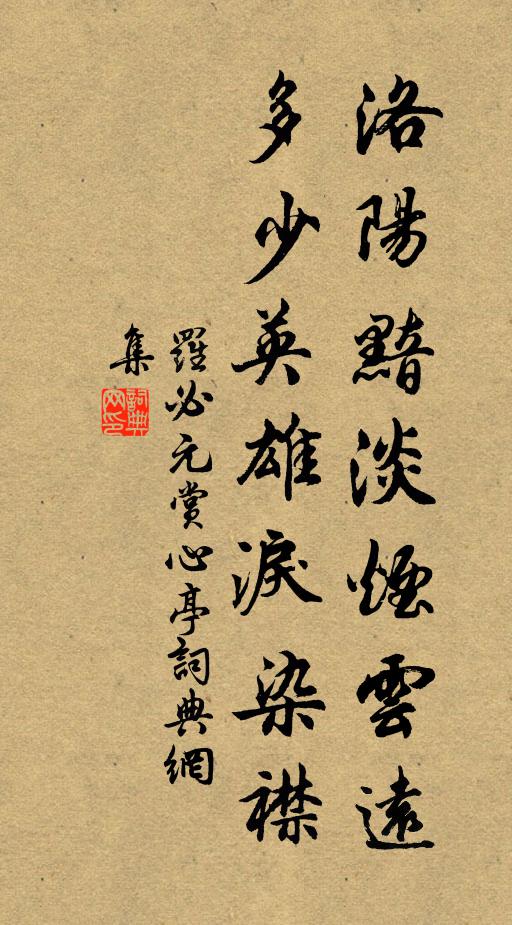 洛陽黯淡煙雲遠
多少英雄淚染襟
羅必元賞心亭詞典網
集
詞典
网印